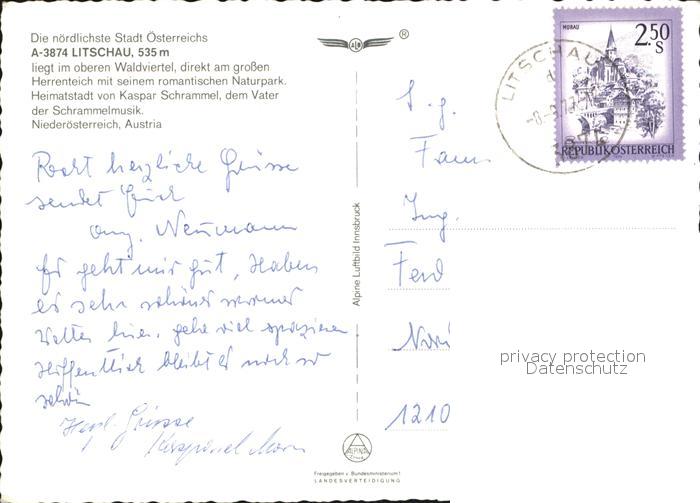 Die nördlichste Stadt Österreichs
A-3874 LITSCHAU, 535 m
liegt im oberen Waldviertel, direkt am großen
Herrenteich mit seinem romantischen Naturpark.
Heimatstadt von Kaspar Schrammel, dem Vater
der Schrammelmusik.
Niederösterreich, Austria
Recht herzliche Grüsse
sendet Euch
Neumann
Es geht mir gut, Haben
es sehr schönes warmes
Wetter hier, gehe viel spazieren
Hoffentlich bleibt es noch so
schön
Grüsse
Alpine Luftbild Innsbruck
ALPINE
Freigegeben v. Bundesministerium f.
LANDESVERTEIDIGUNG
®
MURAU
2.50
S
REPUBLIK ÖSTERREICH
LITSCHAU
S. g.
Fam.
Ing.
Ferd
1210
privacy protection
Datenschutz